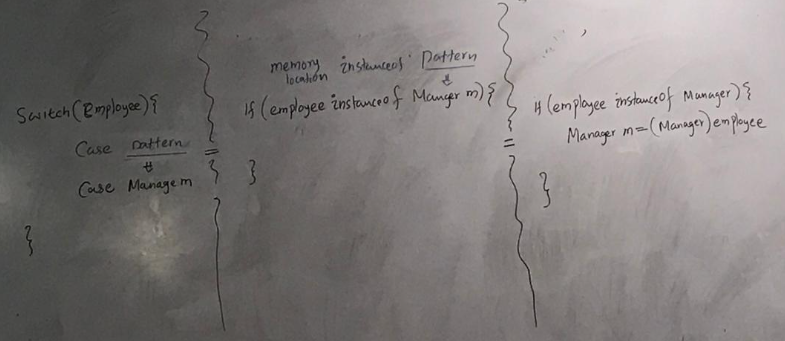 Switch(Employee){
Case Pattern
Case Manage m
}
=
memory instanceof Pattern
location
If (employee instanceof Manger m) {
}
=
If (employee instanceof Manager) {
Manager m=(Manager)employee
}